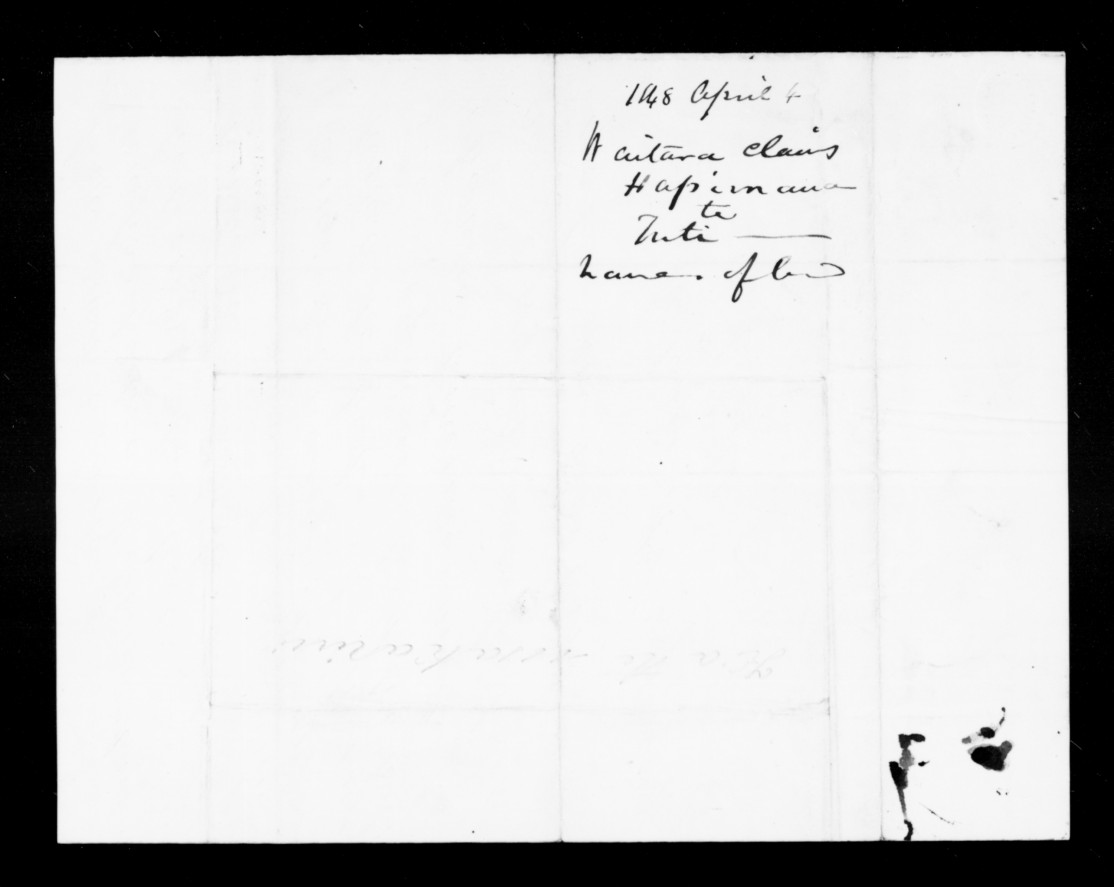 1848 April 4
Waitara claims
Hapimana
te
Tuti
names of land